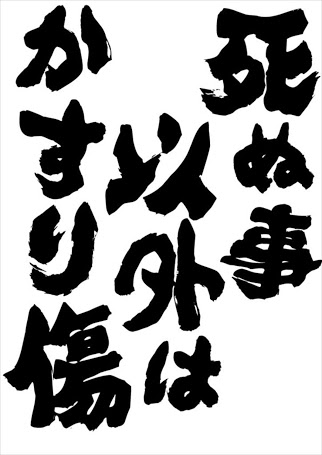 死ぬ事
以外は
かすり傷